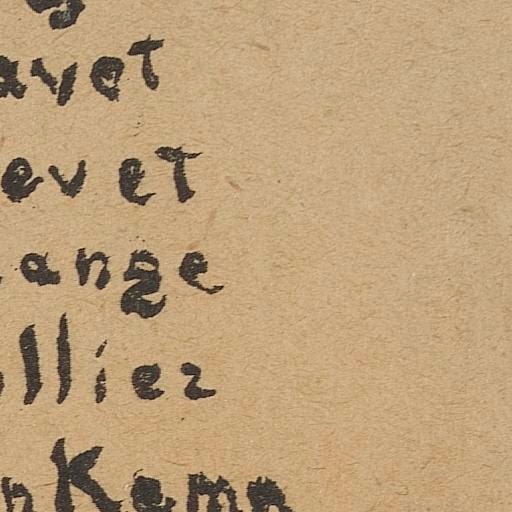 avot
evet
ange
llier
nKemp